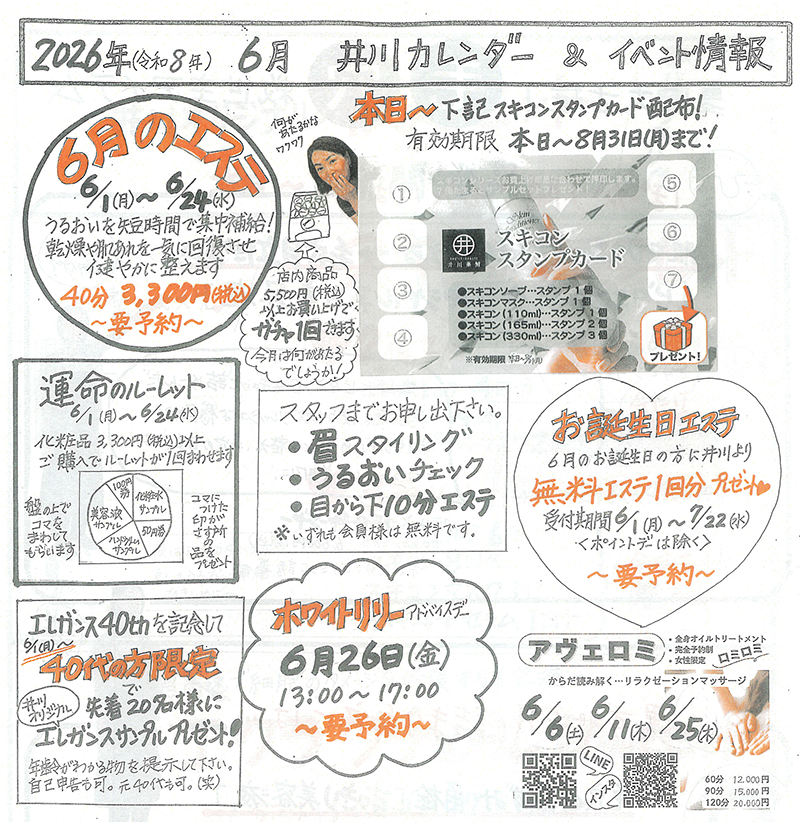 2026年(令和8年) 6月 井川カレンダー & イベント情報
6月のエステ
6/1(月)〜6/24(水)
うるおいを短時間で集中補給!
乾燥や肌あれを一気に回復させ
健やかに整えます
40分 3,300円(税込)
〜要予約〜
何が
あたるかな
ワクワク
本日〜下記スキコンスタンプカード配布!
有効期限 本日〜8月31日(月)まで!
スキコンシリーズお買上げ商品に合わせて押印します。
7個たまるとサンプルセットプレゼント!
①
②
③
④
⑤
⑥
⑦
井川薬粧
スキコン
スタンプカード
●スキコンソープ…スタンプ 1 個
●スキコンマスク…スタンプ 1 個
●スキコン(110ml)…スタンプ 1 個
●スキコン(165ml)…スタンプ 2 個
●スキコン(330ml)…スタンプ 3 個
プレゼント!
店内商品
5,500円(税込)
以上お買い上げで
ガチャ1回できます
今月は何が当たる
でしょうか!
運命のルーレット
6/1(月)〜6/24(水)
化粧品3,300円(税込)以上
ご購入でルーレットが1回まわせます
盤の上で
コマを
まわして
もらいます
100円
券
化粧水
サンプル
美容液
サンプル
50円券
ハンドクリーム
サンプル
コマに
つけた
印が
さす所
の
品を
プレゼント
スタッフまでお申し出下さい。
・眉スタイリング
・うるおいチェック
・目から下10分エステ
※いずれも会員様は無料です。
お誕生日エステ
6月のお誕生日の方に井川より
無料エステ1回分プレゼント♥
受付期間6/1(月)〜7/22(水)
<ポイントデーは除く>
〜要予約〜
エレガンス40thを記念して
6/1(月)〜
40代の方限定
で
井川
オリジナル
先着20名様に
エレガンスサンプルプレゼント!
年齢がわかる物を提示して下さい。
自己申告も可。元40代も可。(笑)
ホワイトリリーアドバイスデー
6月26日(金)
13:00〜17:00
〜要予約〜
アヴェロミ
・全身オイルトリートメント
・完全予約制
・女性限定
ロミロミ
からだ読み解く…リラクゼーションマッサージ
6/6(土) 6/11(木) 6/25(木)
LINE
インスタ
60分 12,000円
90分 15,000円
120分 20,000円